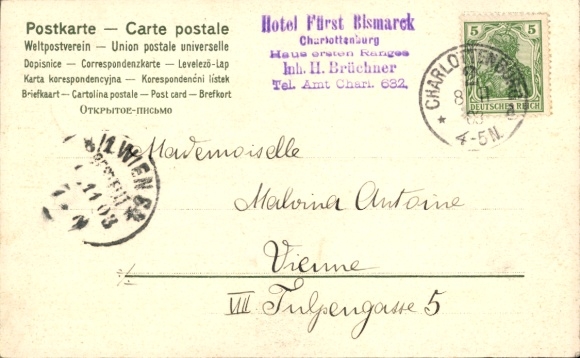 Postkarte — Carte postale
Weltpostverein — Union postale universelle
Dopisnice — Correspondenzkarte — Levelező-Lap
Karta korespondencyjna — Korespondenční lístek
Briefkaart — Cartolina postale — Post card — Brefkort
Открытое-письмо
Hotel Fürst Bismarck
Charlottenburg
Haus ersten Ranges
Inh. H. Brüchner
Tel. Amt Charl. 632.
5 5
DEUTSCHES REICH
CHARLOTTENBURG
4-5N.
WIEN
11 03
Mademoiselle
Malvina Antoine
Vienne
VIII Tulpengasse 5